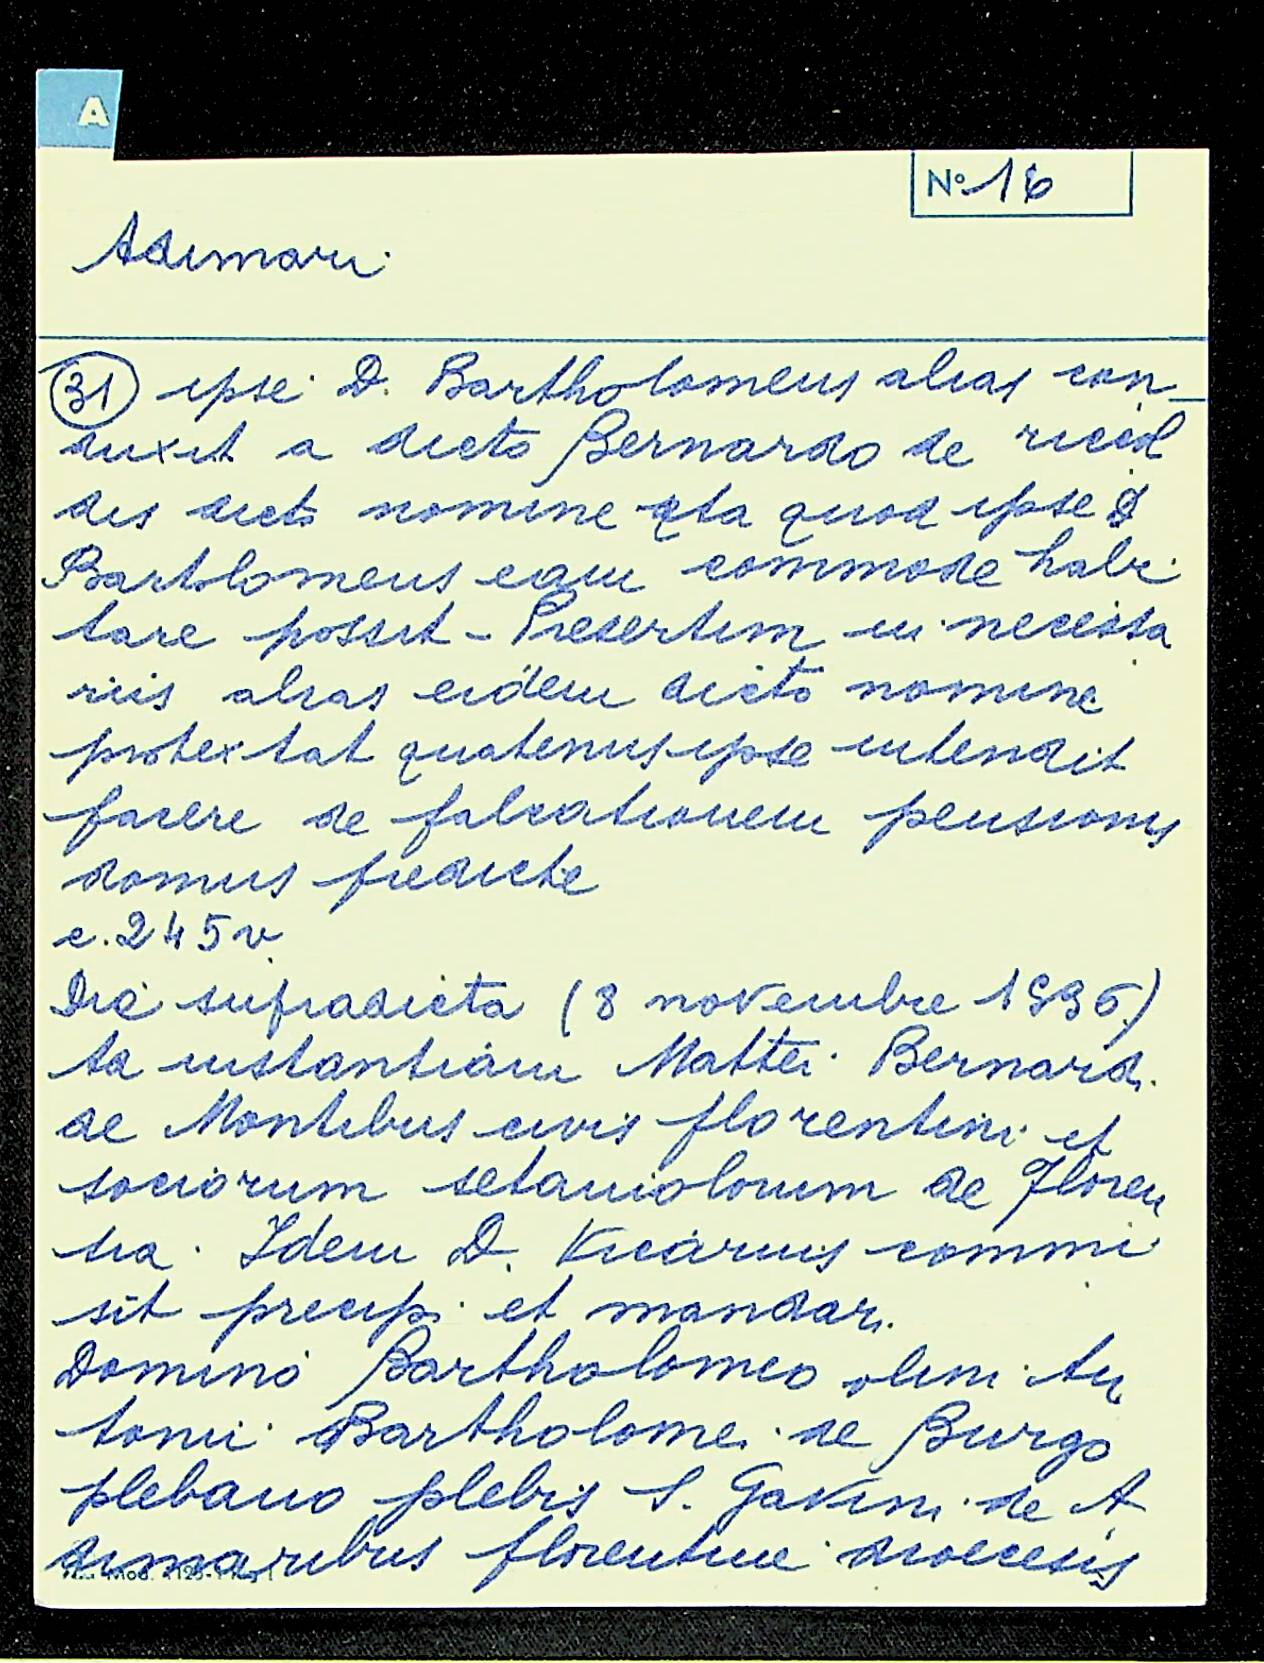 A
N° 16
Adimari
31 ipse D. Bartholomeus alias con_
duxit a dicto Bernardo de ricol
dis dicto nomine ita quod ipse D
Bartolomeus eam commode habi
tare possit - Presertim in necessa
riis alias eidem dicto nomine
protextat quatenus ipse intendit
facere de falcationem pensionis
domus predicte
c. 245v
Die supradicta (8 novembre 1496)
ta instantiam Mattei Bernardi
de Montibus civis florentini et
sociorum setaiuolorum de Floren
tia. Idem D. Vicarius commi
sit precipi et mandari.
Domino Bartholomeo olim An
tonii Bartholomei de Burgo
plebano plebis S. Gavini de A
dimaribus florentine diocesis